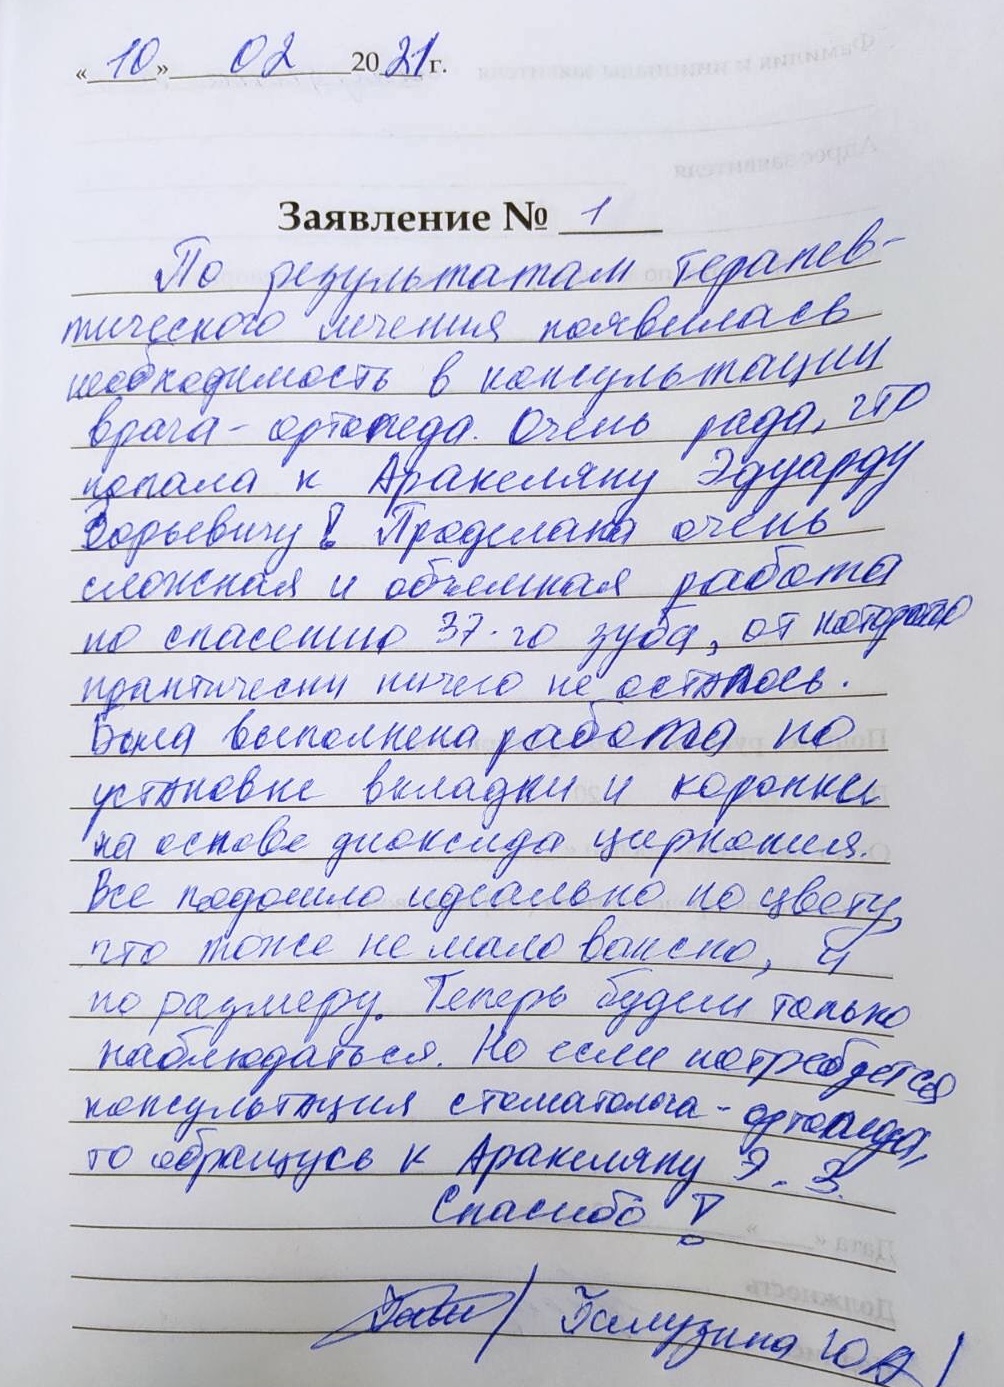 «10» 02 2021 г.
Заявление № 1
По результатам терапев-
тического лечения появилась
необходимость в консультации
врача-ортопеда. Очень рада, что
попала к Аракеляну Эдуарду
Зорьевичу! Проделана очень
сложная и объемная работа
по спасению 37-го зуба, от которого
практически ничего не осталось.
Была выполнена работа по
установке вкладки и коронки
на основе диоксида циркония.
Все подошло идеально по цвету,
что тоже не мало важно, и
по размеру. Теперь будем только
наблюдаться. Но если потребуется
консультация стоматолога-ортопеда,
то обращусь к Аракеляну Э. З.
Спасибо!
/ Ю А /